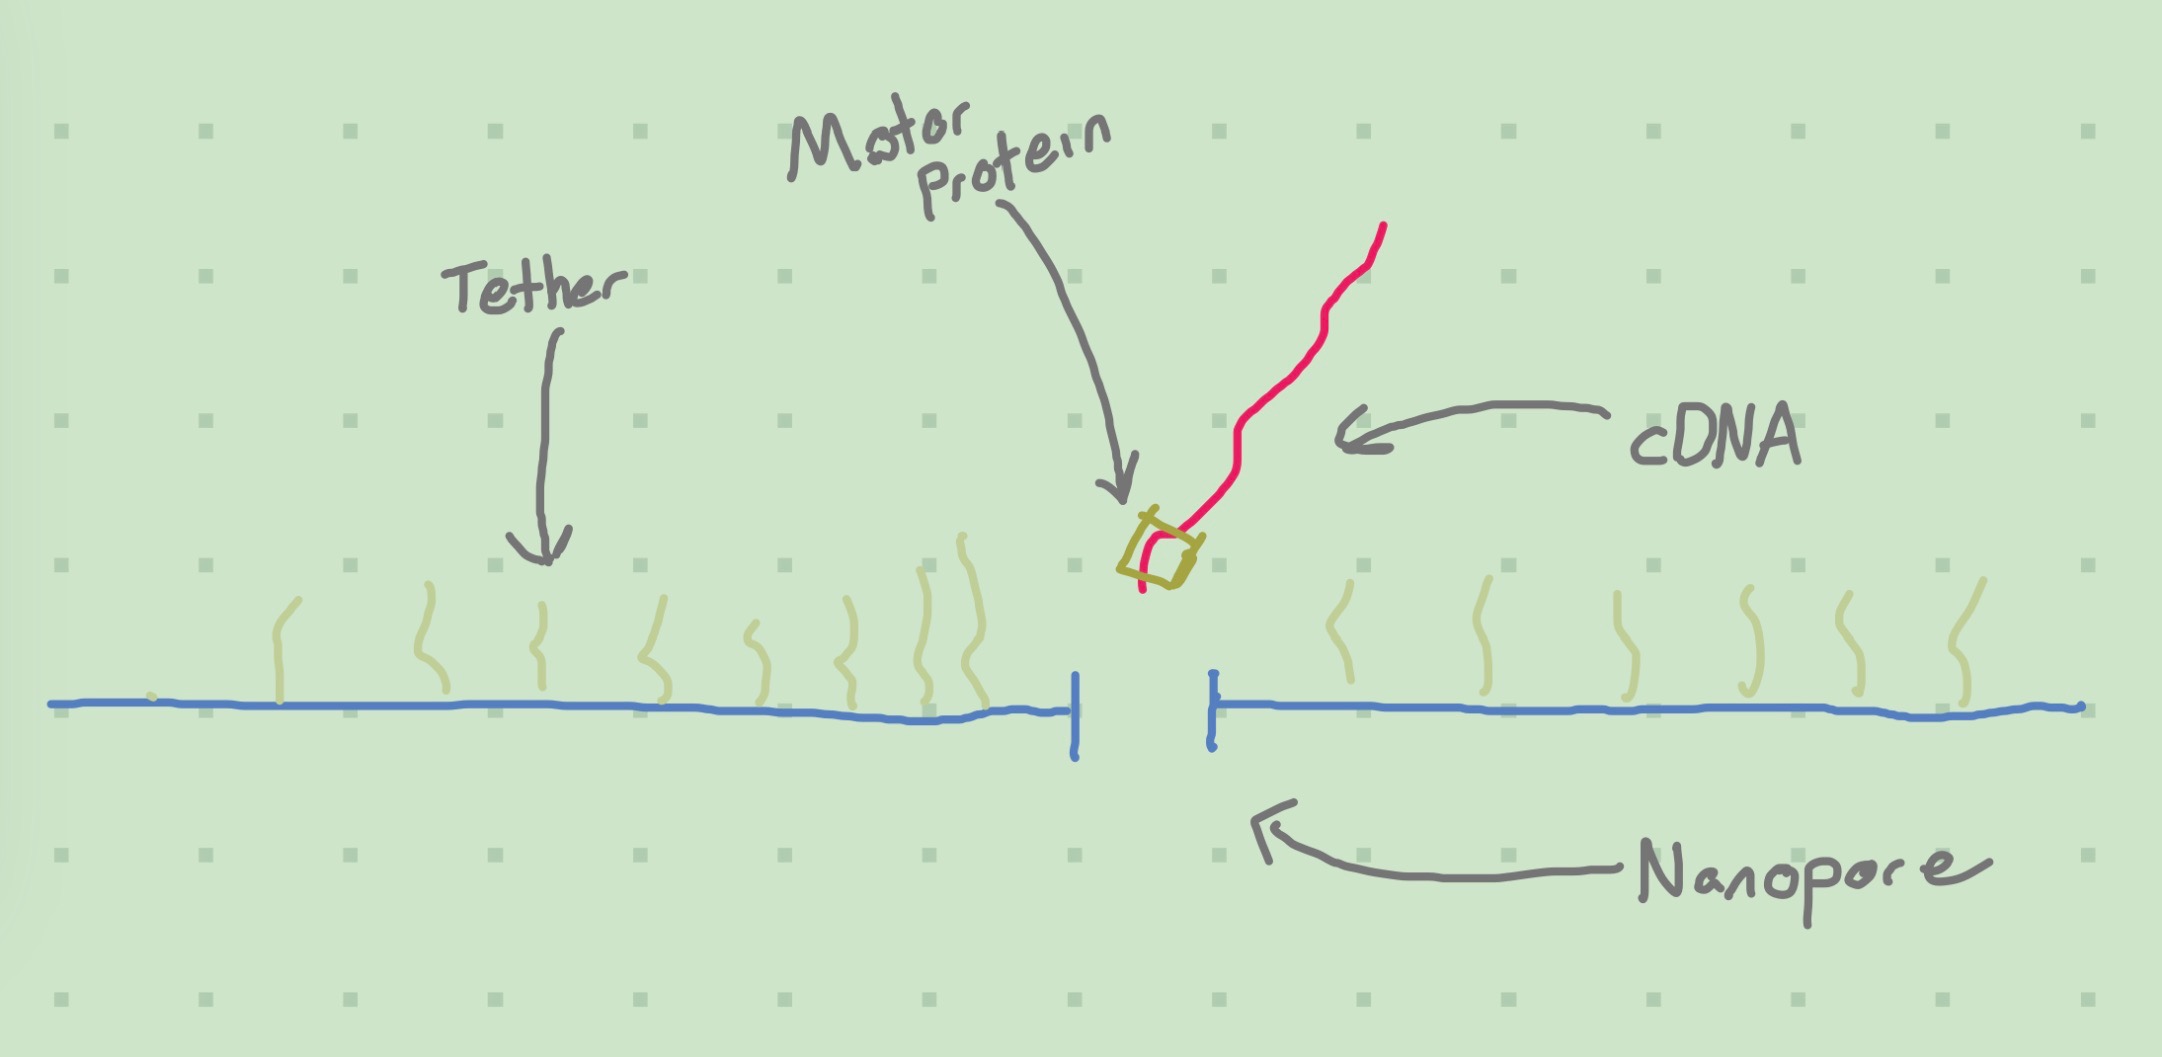 Motor
Protein
Tether
cDNA
Nanopore